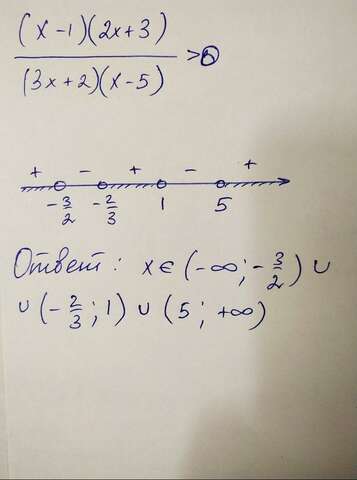 (x-1)(2x+3)
(3x+2)(x-5) >0
+ - + - +
-3/2 -2/3 1 5
Ответ: x∈(-∞;-3/2)∪
∪(-2/3;1)∪(5;+∞)